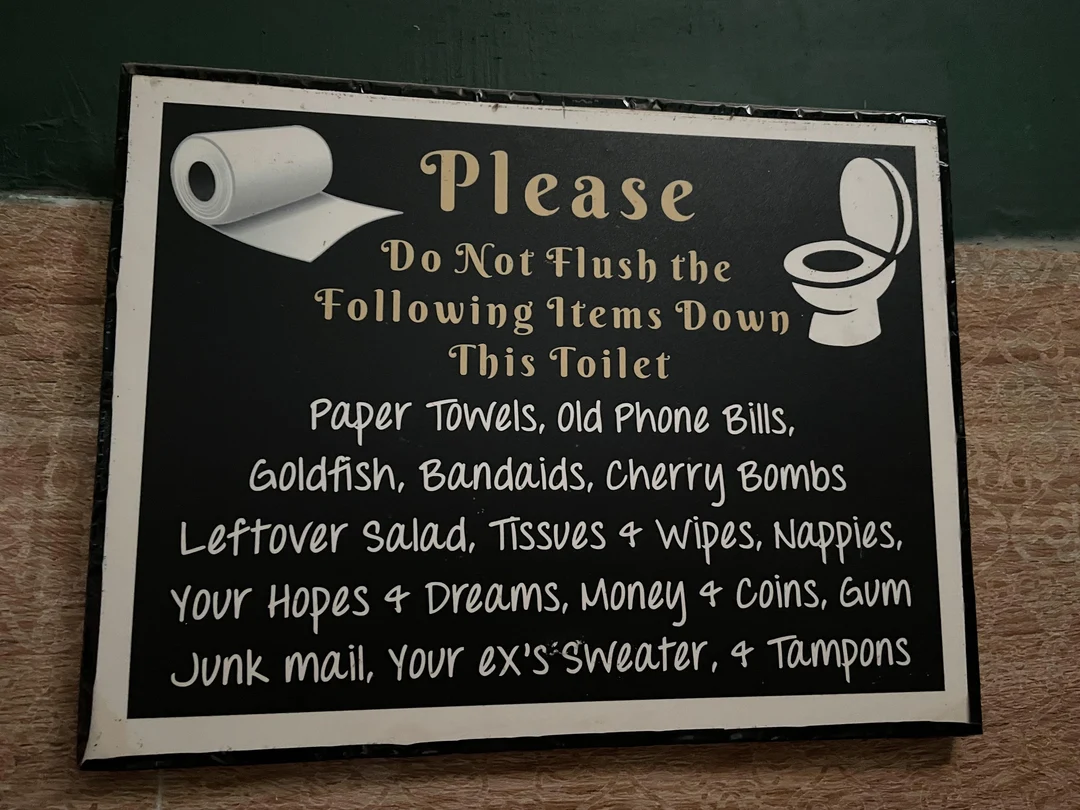 Please
Do Not Flush the
Following Items Down
This Toilet
Paper Towels, Old Phone Bills,
Goldfish, Bandaids, Cherry Bombs
Leftover Salad, Tissues & Wipes, Nappies,
Your Hopes & Dreams, Money & Coins, Gum
Junk mail, Your ex's Sweater, & Tampons